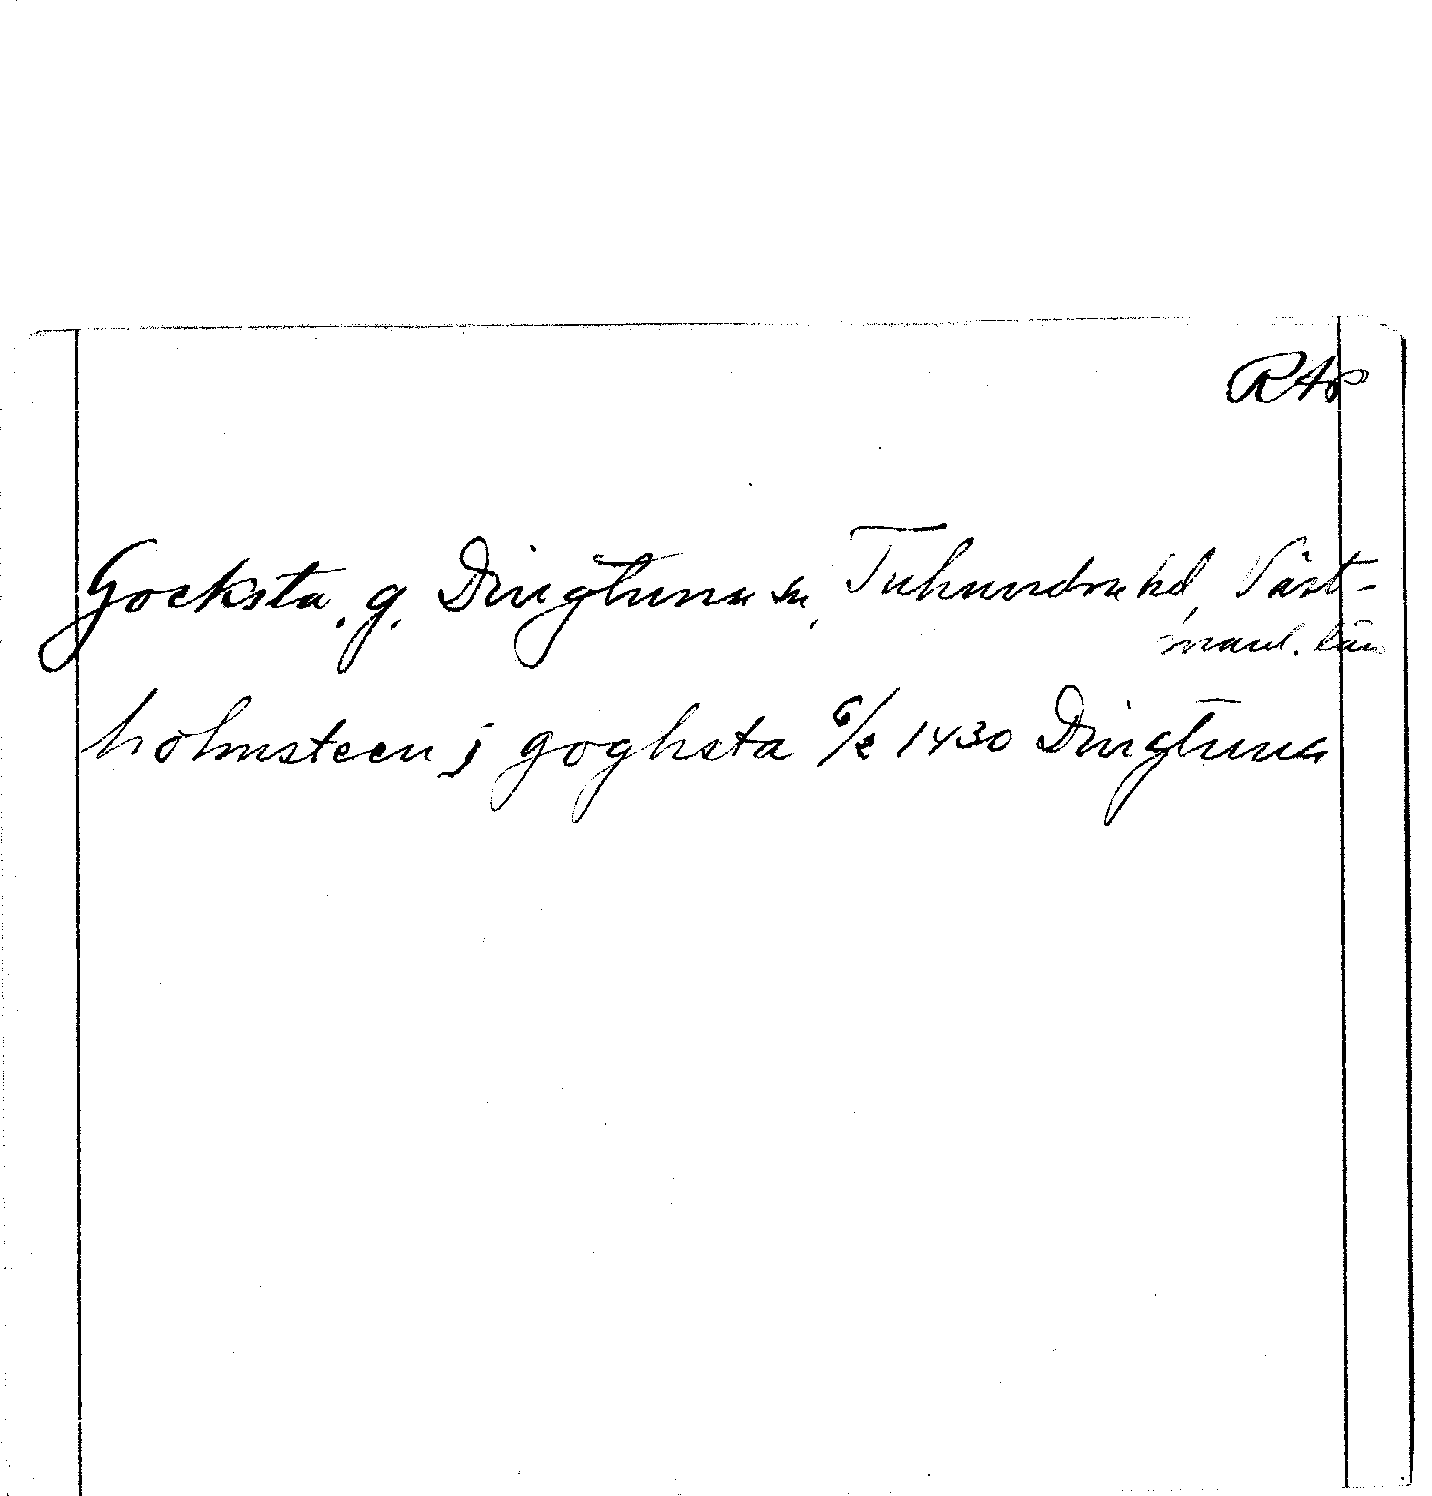 RAp
Gocksta. g. Dingtuna sn, Tuhundra hd, Väst-
manl. län
holmsteen j goghsta 6/2 1430 Dingtuna